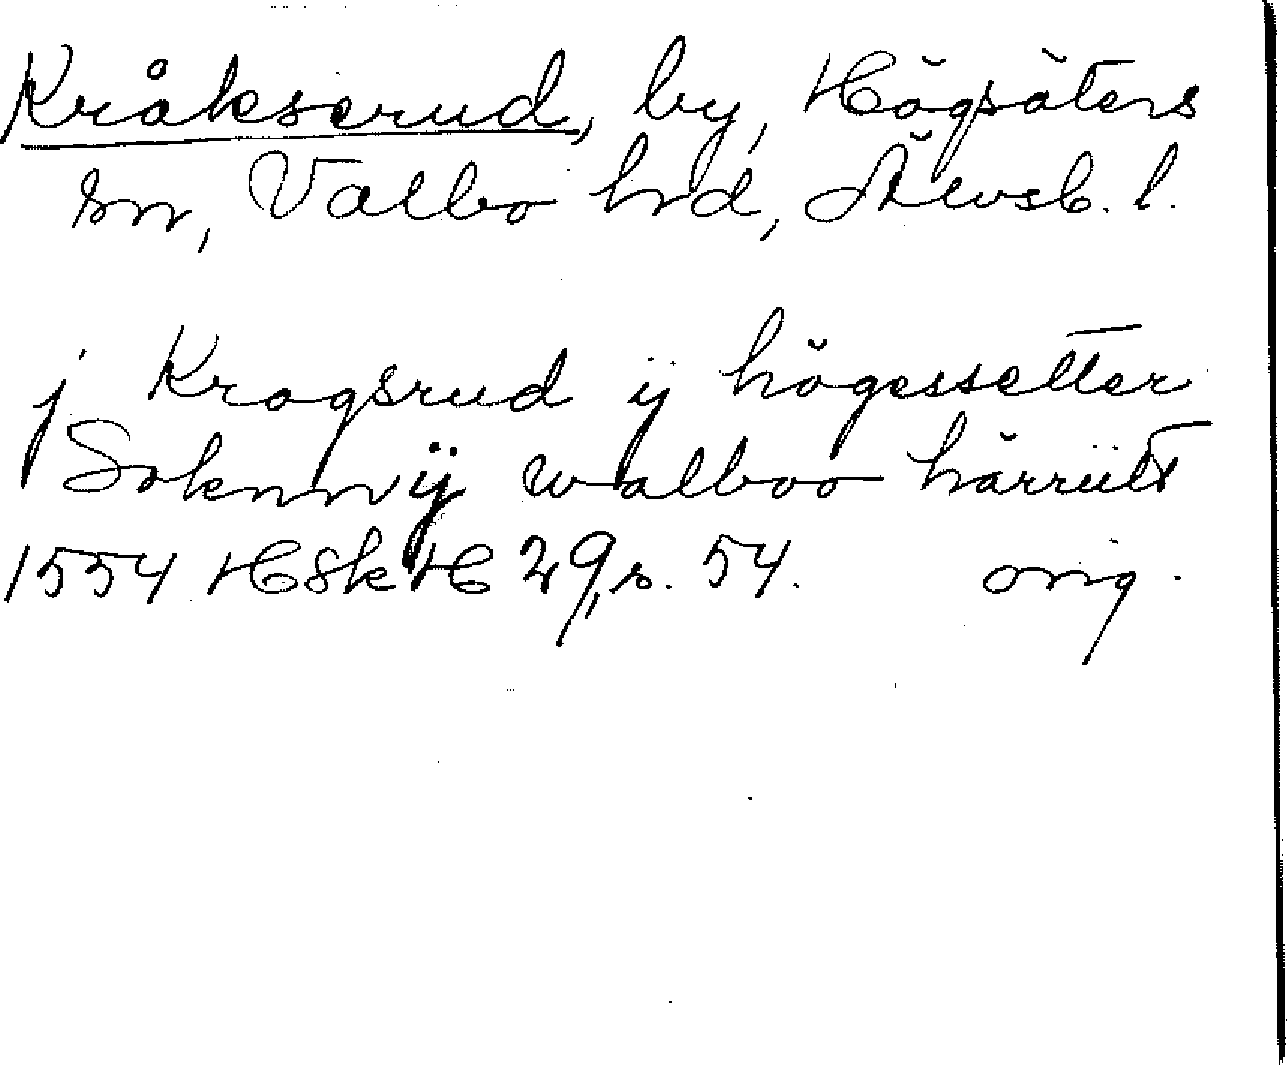 Kråkserud, by, Högsäters
sn, Valbo hd, Älvsb. l.
j Kragsrud ij högessetter
Soknn ij walboo härriitt
1554 HSkH 29, s. 54. orig.